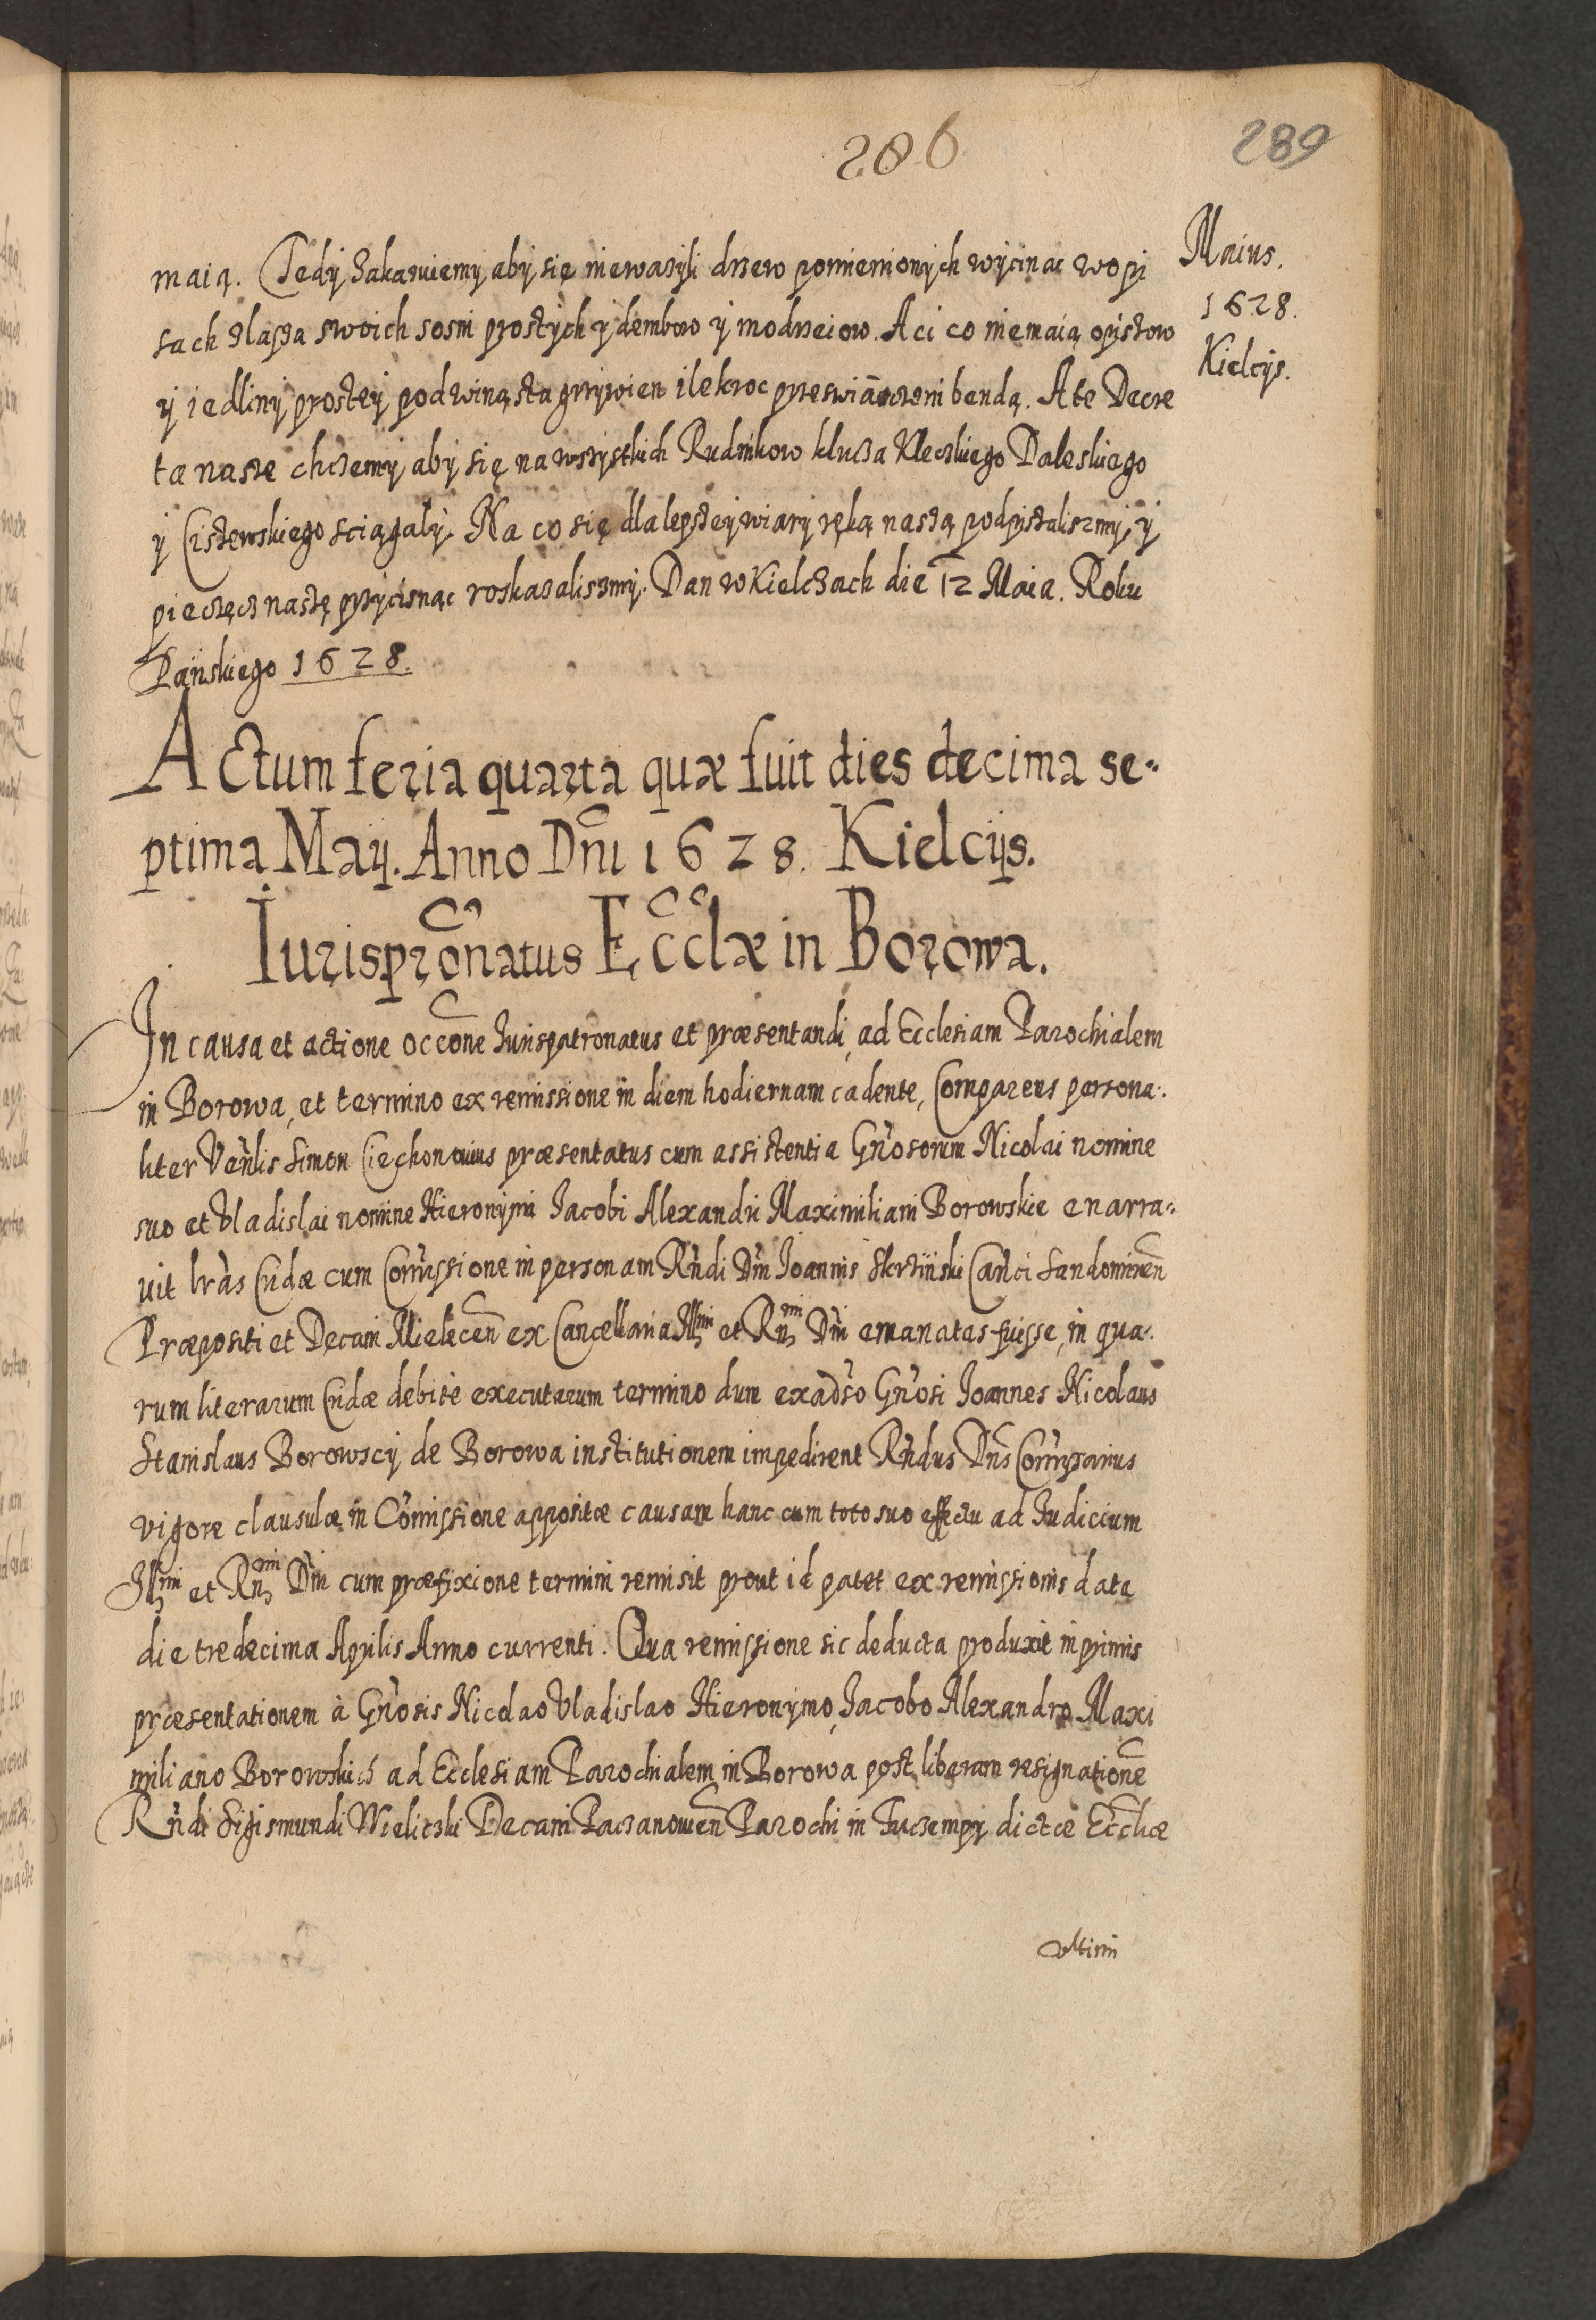 286
289
Maius.
1628.
Kielcijs.
maią. Tedy zakazuiemy aby się nieważyli drzew pomienionych wycinac w opi
sach zlasza swoich sosni prostych y dembow y modrzeiow. A ci co niemaią opisow
y iedliny prostey pod winą sta grzywien ilekroc przeswiadczeni bendą. A te Decre
ta nasze chczemy aby się na wszystkich Rudnikow klucza Kleczkiego Daleskiego
y Cisłewskiego sciągaly. Na co się dla lepszey wiary ręką naszą podpisalismy, y
pieczęcz naszę przycisnąc roskazalismy. Dan w Kielczach die 12 Maia. Roku
Pańskiego 1628.
Actum feria quarta quæ fuit dies decima se-
ptima Maij. Anno Dñi 1628. Kielcijs.
Iurisprõnatus Eccłæ in Borowa.
In causa et actione occõne Jurispatronatus et præsentandi ad Ecclesiam Parochialem
in Borowa, et termino ex remissione in diem hodiernam cadente, Comparens persona-
liter Veñlis Simon Ciechonouius præsentatus cum assistentia Gñosorum Nicolai nomine
suo et Vladislai nomine Hieronymi Jacobi Alexandri Maximiliani Borowskie enarra-
uit lràs Cridæ cum Com̃issione in personam Rñdi Dñi Joannis Skrziński Cañci Sandomireñ
Præpositi et Decani Mieleceñ ex Cancellaria Illmi et Rmi Dñi emanatas fuisse, in qua-
rum literarum Cridæ debitè executarum termino dum exadũso Gñosi Joannes Nicolaus
Stanislaus Borowscy de Borowa institutionem impedirent Rñdus Dñs Com̃issarius
vigore clausulæ in Com̃issione appositæ causam hanc cum toto suo effectu ad Judicium
Illmi et Rmi Dñi cum præfixione termini remisit prout id patet ex remissionis data
die tredecima Aprilis Anno currenti. Qua remissione sic deducta produxit inprimis
præsentationem à Gñosis Nicolao Vladislao Hieronymo, Jacobo Alexandro Maxi
miliano Borowskich ad Ecclesiam Parochialem in Borowa post liberam resignationẽ
Rñdi Sigismundi Wieliczki Decani Paczanouieñ Parochi in Tuczempy dictæ Ecclæ
vltimi